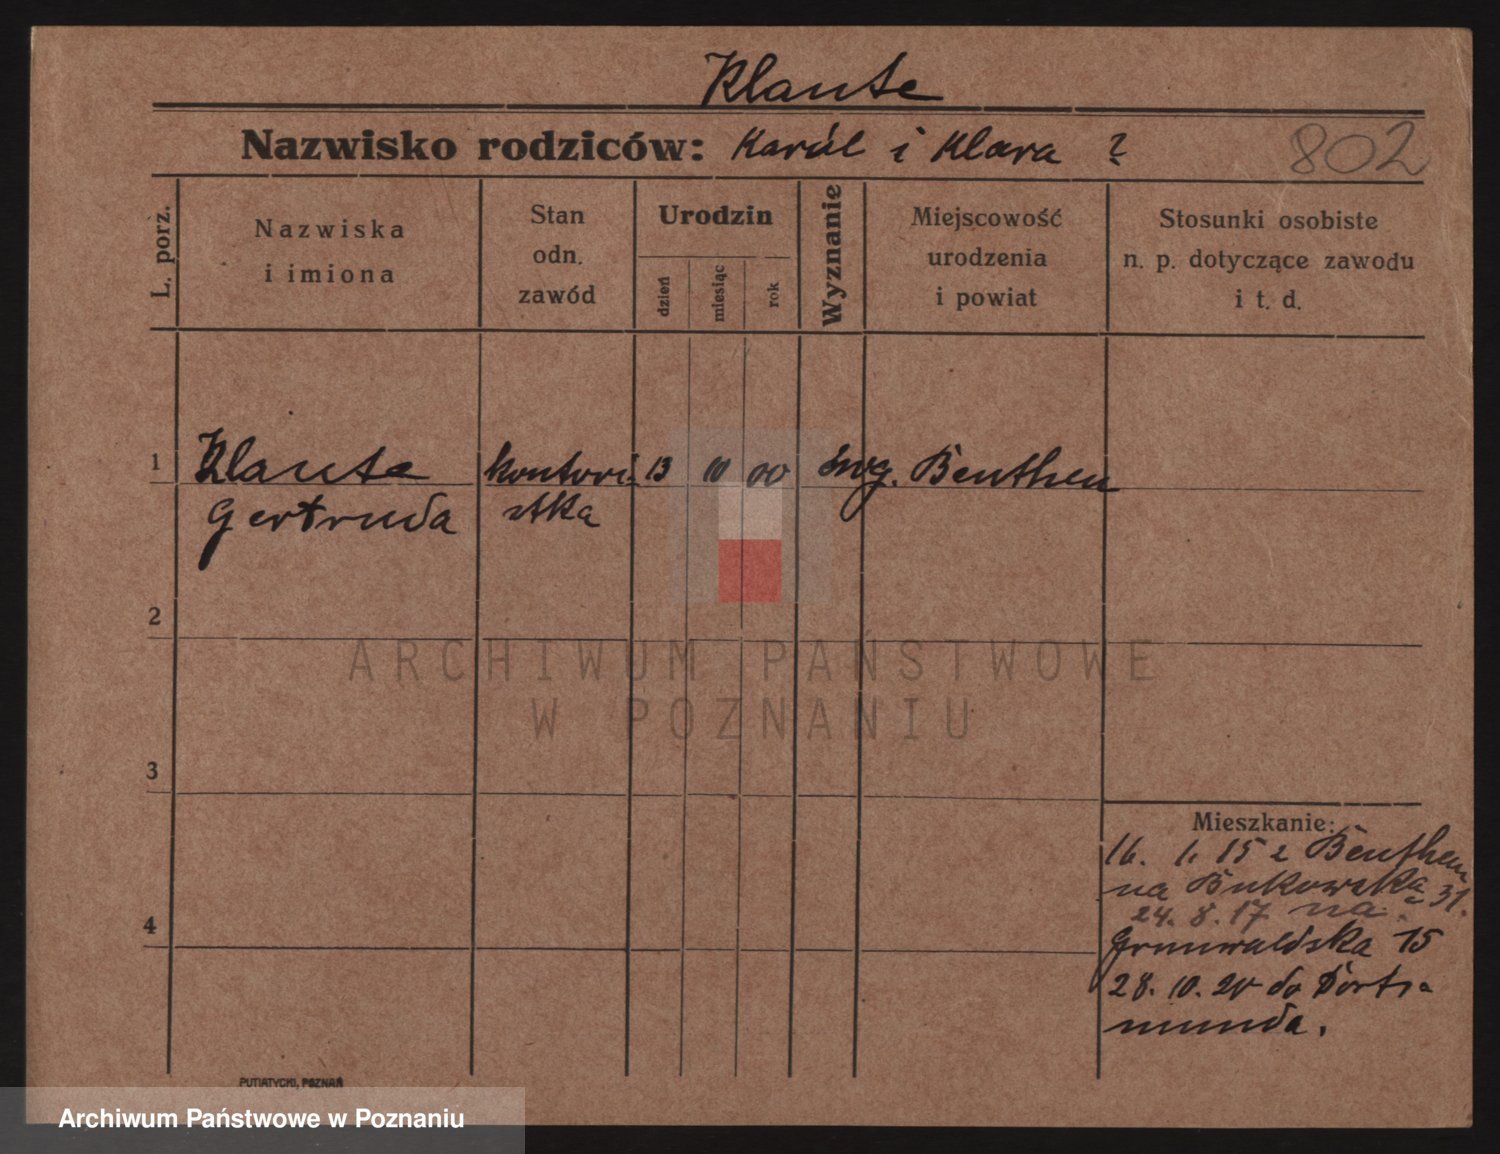 Klaute
Nazwisko rodziców: Karól i Klara ?
802
L. porz.
Nazwiska
i imiona
Stan
odn.
zawód
Urodzin
dzień
miesiąc
rok
Wyznanie
Miejscowość
urodzenia
i powiat
Stosunki osobiste
n. p. dotyczące zawodu
i t. d.
1
Klaute
Gertruda
kontori-
stka
13 10 00
ewg.
Beuthen
2
ARCHIWUM PAŃSTWOWE
W POZNANIU
3
Mieszkanie:
16. 1. 15 z Beuthen
na Bukowska 31.
24. 8. 17 na
4
Grunwaldska 15
28. 10. 20 do Dort-
munda.
PUTIATYCKI, POZNAŃ
Archiwum Państwowe w Poznaniu